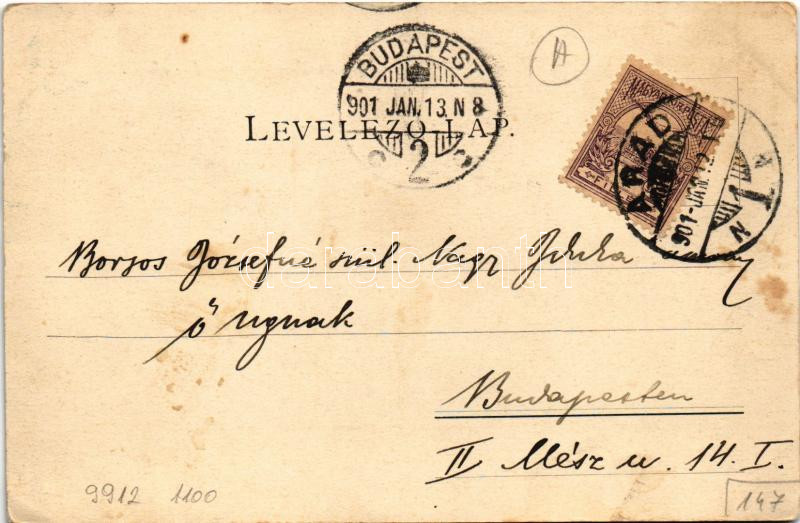 BUDAPEST
901 JAN. 13. N 8
2
A
MAGYAR KIR. POSTA
ARAD
901-JAN. 12.
N 1
LEVELEZŐ-LAP.
Borsos Józsefné szül. Nagy
ő Ngnak
Budapesten
II Mész u. 14. I.
darabanth
9912 1100
147